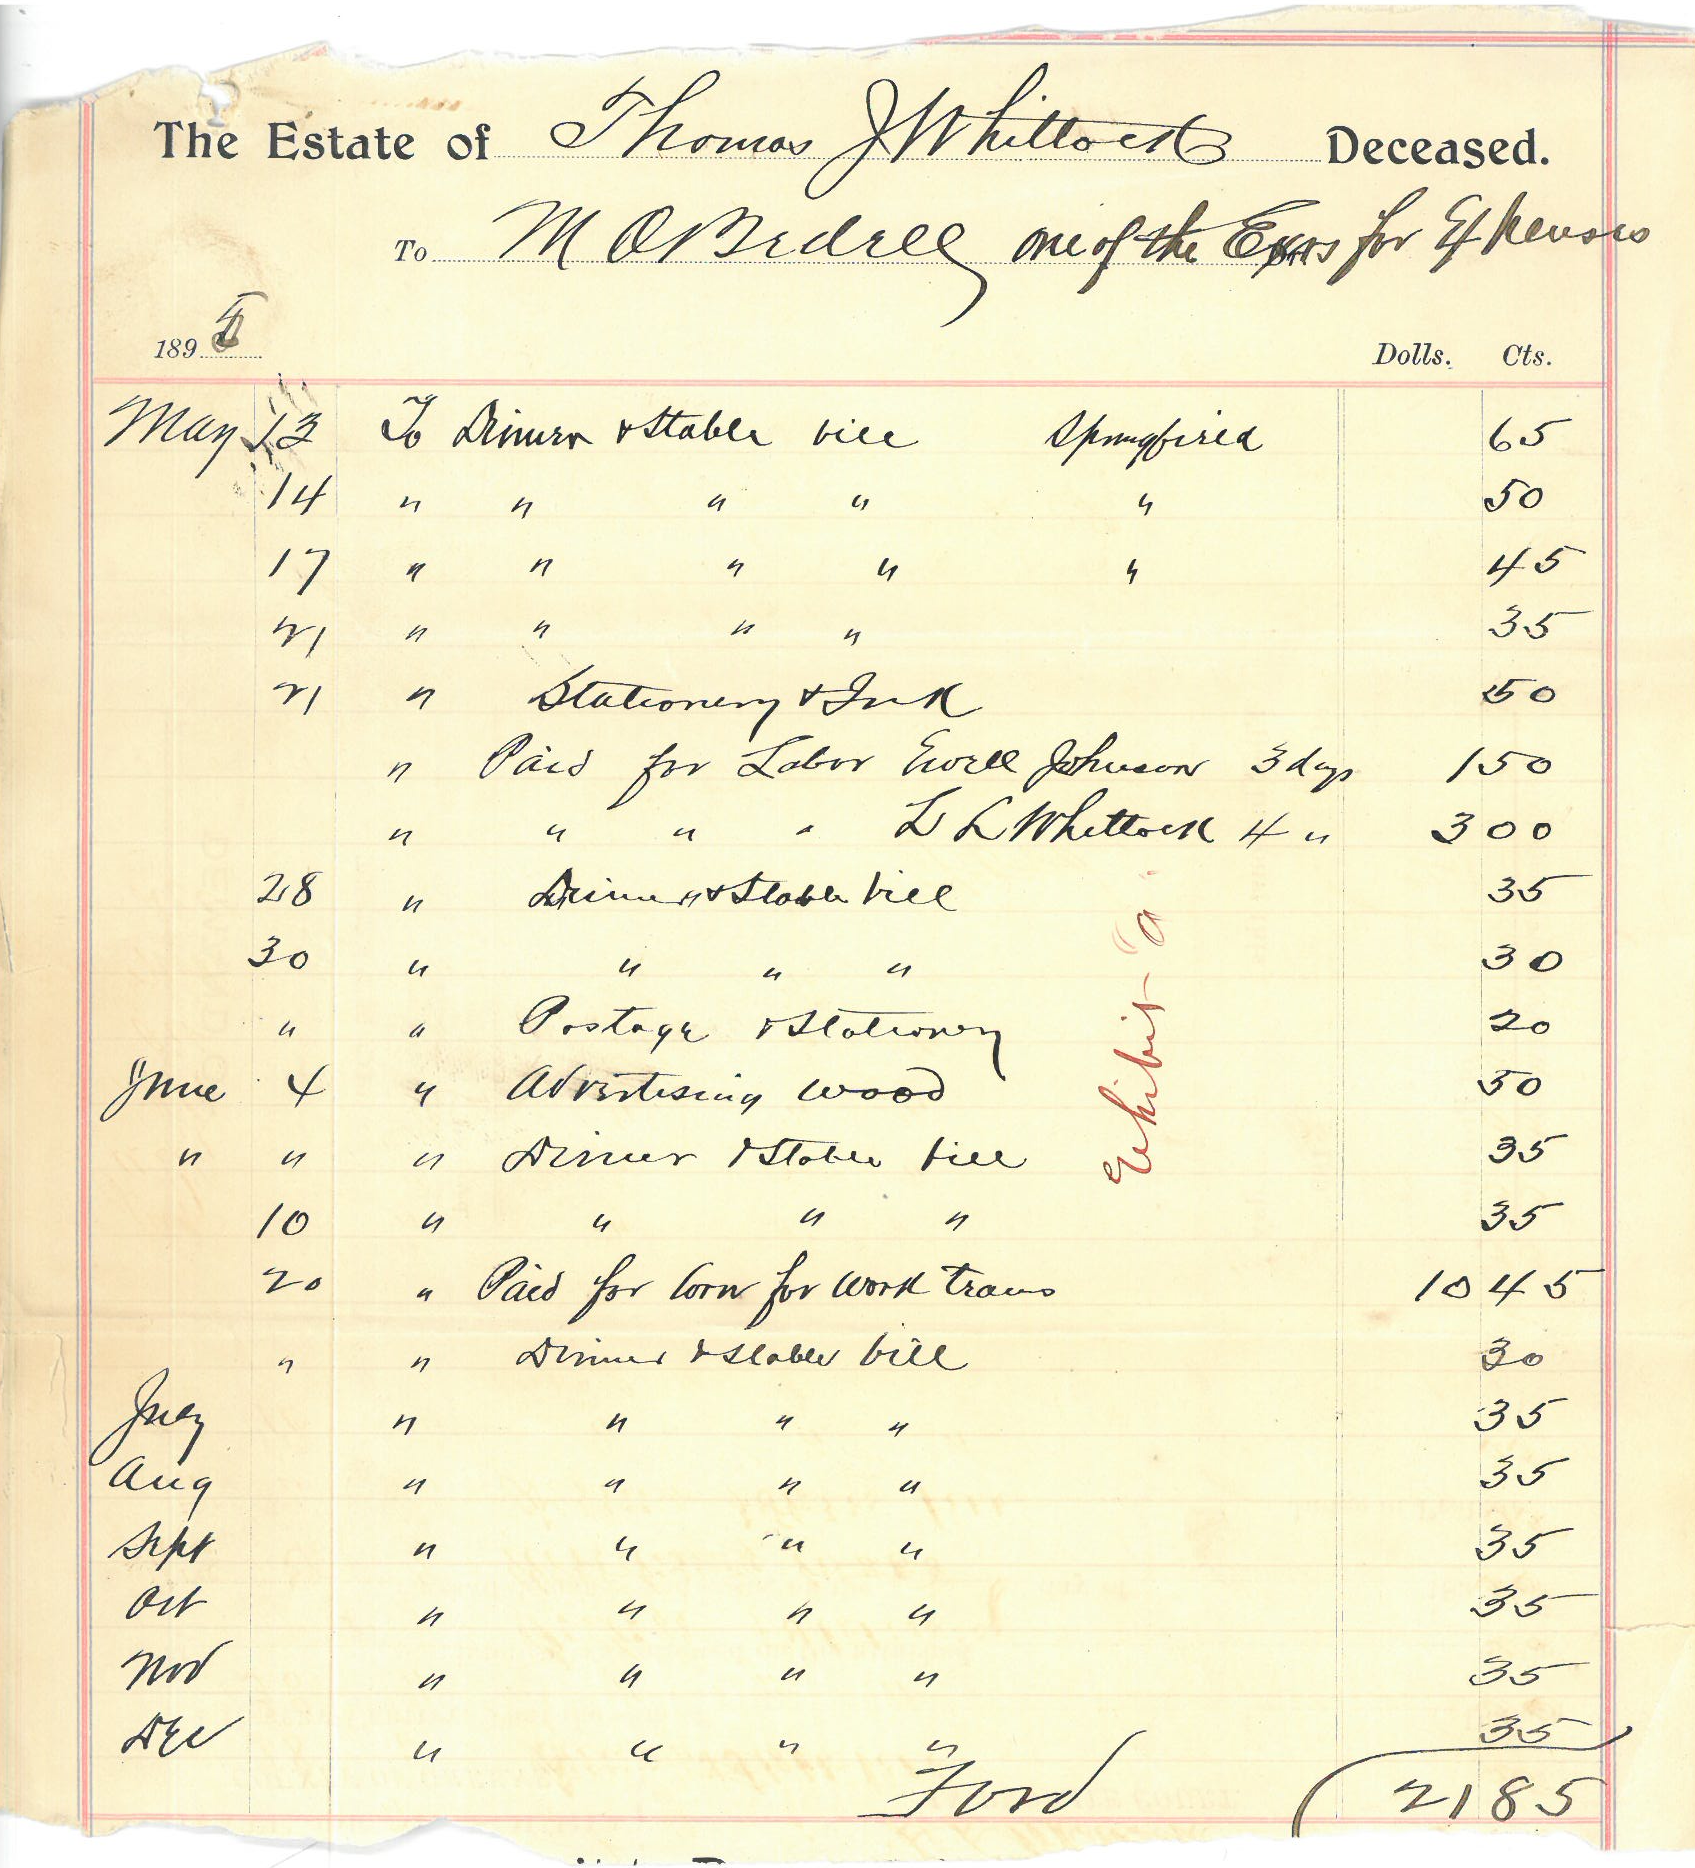 The Estate of Thomas J Whittock Deceased.
To M O Bedell one of the Exrs for Expenses
1895
Dolls. Cts.
May 13 To Dinner & Stable bill Springfield 65
14 " " " " " 50
17 " " " " " 45
21 " " " " 35
21 " Stationery & Ink 50
" Paid for Labor Ewell Johnson 3 days 1 50
" " " " L L Whittock 4 " 3 00
28 " Dinner & Stable bill 35
30 " " " " 30
" " Postage & Stationery 20
June 4 " Advertising wood 50
" " " Dinner & Stable bill 35
10 " " " " 35
20 " Paid for Corn for work teams 10 45
" " Dinner & Stable bill 30
July " " " " 35
Aug " " " " 35
Sept " " " " 35
Oct " " " " 35
Nov " " " " 35
Dec " " " " 35
Ford 21 85
Exhibit "a"